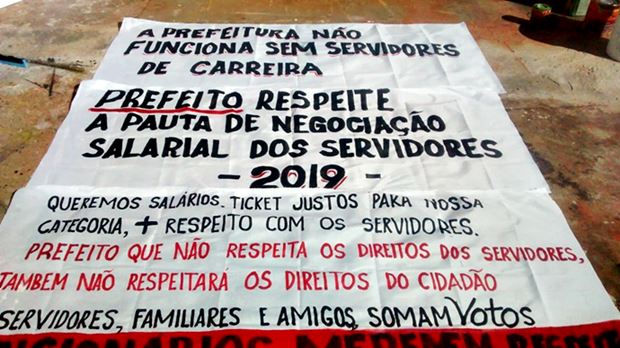 A PREFEITURA NÃO
FUNCIONA SEM SERVIDORES
DE CARREIRA
PREFEITO RESPEITE
A PAUTA DE NEGOCIAÇÃO
SALARIAL DOS SERVIDORES
- 2019 -
QUEREMOS SALÁRIOS. TICKET JUSTOS PARA NOSSA
CATEGORIA, + RESPEITO COM OS SERVIDORES.
PREFEITO QUE NÃO RESPEITA OS DIREITOS DOS SERVIDORES,
TAMBEM NÃO RESPEITARÁ OS DIREITOS DO CIDADÃO
SERVIDORES, FAMILIARES E AMIGOS, SOMAM VOTOS